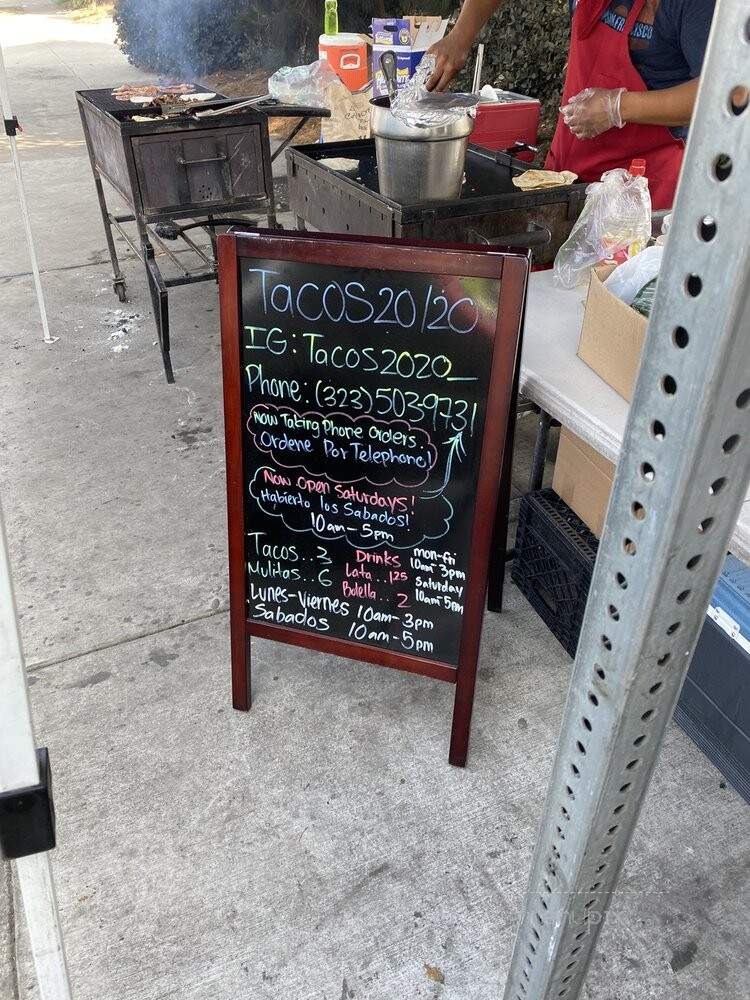 TACOS 20/20
IG: Tacos2020_
Phone: (323) 503-9731
Now Taking Phone Orders.
Ordene Por Telephono!
Now open Saturdays!
Habierto los Sabados!
10am-5pm
Tacos..3
Mulitas..6
Drinks
Lata..1.25
Botella...2
mon-fri
10am-3pm
Saturday
10am-5pm
Lunes-Viernes 10am-3pm
Sabados 10am-5pm